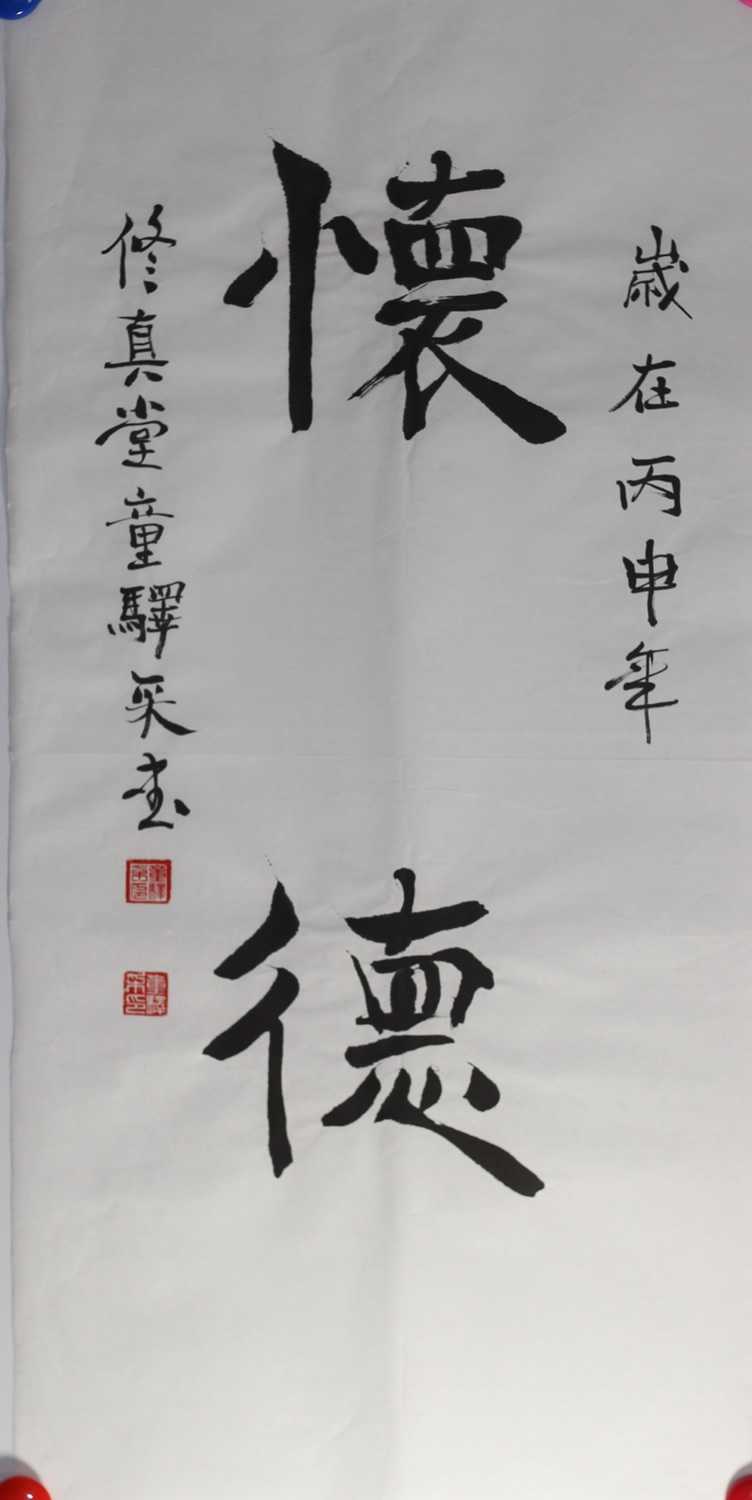 歲在丙申年
懷德
修真堂童驛采书